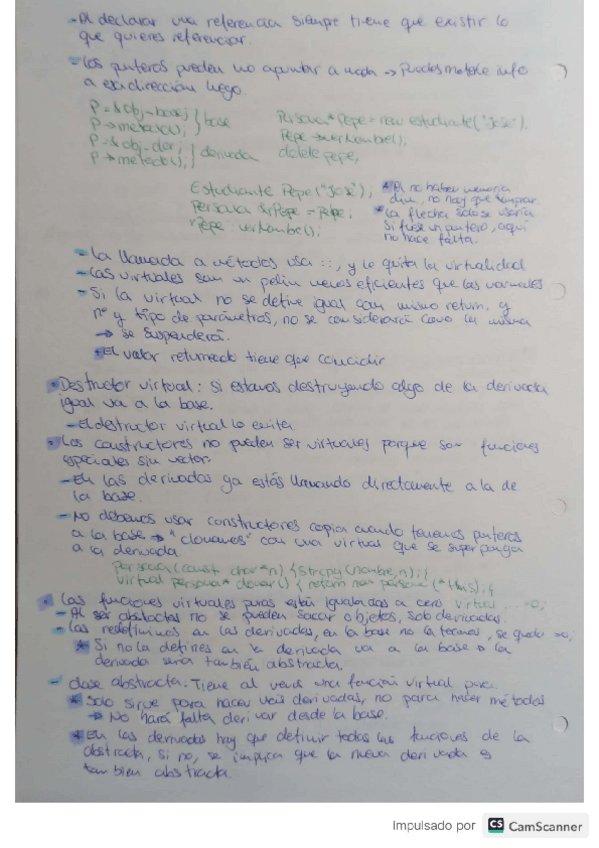 - Al declarar una referencia siempre tiene que existir lo
que quieres referenciar.
- Los punteros pueden no apuntar a nada → Puedes meterle info
a esa dirección luego.
P = & obj_base; } base
P → metodo();
P = & obj_der; } derivada
P → metodo();
Persona* Pepe = new estudiante("José");
Pepe → verNombre();
delete pepe;
Estudiante Pepe("José");
Persona & rPepe = Pepe;
rPepe.verNombre();
* Al no haber memoria
din., no hay que
* La flecha solo se usaría
si fuese un puntero, aquí
no hace falta.
- La llamada a métodos usa ::, y le quita la virtualidad
- Las virtuales son un pelín menos eficientes que las normales
- Si la virtual no se define igual con mismo return, y
nº y tipo de parámetros, no se considerará como la misma
→ se suspenderá.
* El valor returneado tiene que coincidir
• Destructor virtual: si estamos destruyendo algo de la derivada
igual va a la base.
- El destructor virtual lo evita.
• Los constructores no pueden ser virtuales porque son funciones
especiales sin vector.
- En las derivadas ya estás llamando directamente a la de
la base.
- No debemos usar constructores copia cuando tenemos punteros
a la base → "clonamos" con una virtual que se superponga
a la derivada
persona(const char*n) {strcpy(nombre,n);}
virtual persona* clonar() { return new persona (*this); }
• Las funciones virtuales puras están igualadas a cero virtual ... =0;
- Al ser abstractas no se pueden sacar objetos, solo derivadas.
- Las redefinimos en las derivadas, en la base no la tenemos, se queda =0;
* Si no la defines en la derivada va a la base → la
derivada será también abstracta.
- Clase abstracta: Tiene al menos una función virtual pura.
* Solo sirve para hacer más derivadas, no para hacer métodos
→ No hará falta derivar desde la base.
* En las derivadas hay que definir todas las funciones de la
abstracta, si no, se implica que la nueva derivada es
también abstracta.
Impulsado por CS CamScanner